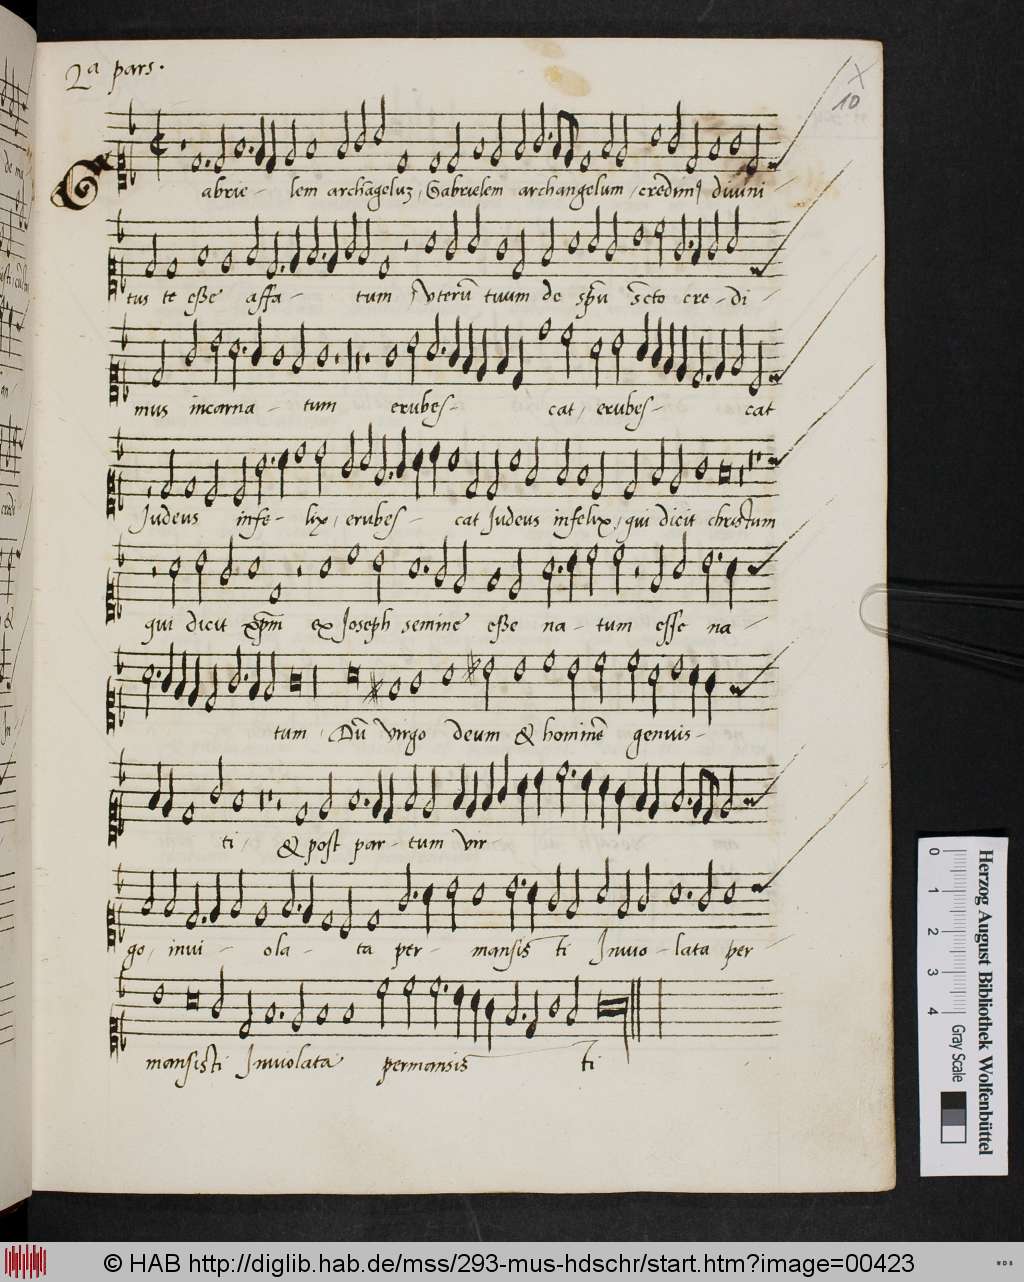 2a pars.
X
10
Gabrie - lem archãgelu3, Gabrielem archangelum, credim9 divini
tus te eße affa - tum, Vterũ tuum de spũ scto cre - di
mus incarna - tum erubes - cat, erubes - cat
Judeus infe - lix, erubes - cat Judeus infelix, qui dicit christum
qui dicit xpm ex Joseph semine eße na - tum esse na -
tum, Dũ virgo deum & hominẽ genuis -
ti, & post par - tum vir
go, invi - ola - ta per - mansis ti Invio - lata per
mansisti Inviolata permansis ti
0 1 2 3 4
Gray Scale
Herzog August Bibliothek Wolfenbüttel
© HAB http://diglib.hab.de/mss/293-mus-hdschr/start.htm?image=00423